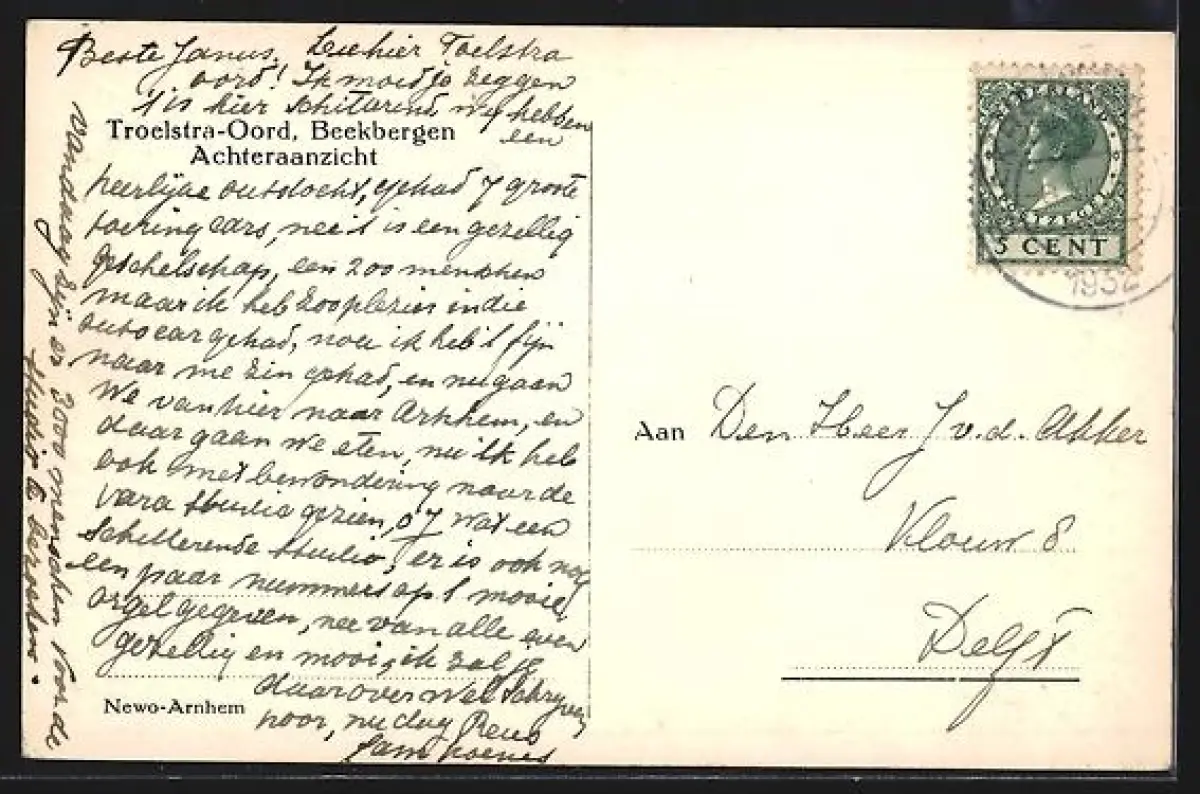 Beste Janus, Zeehier Toelstra
oord! Ik moet je zeggen
't is hier schiterend, wy hebben
een
Troelstra-Oord, Beekbergen
Achteraanzicht
heerlijke autotocht, gehad 7 groote
toering cars, nee 't is een gezellig
geschelschap, een 200 menschen
maar ik heb zoo plezier in die
autocar gehad, nou ik heb 't fijn
naar me zin gehad, en nu gaan
We van hier naar Arnhem, en
daar gaan we eten, nu ik heb
ook met bewondering naar de
Vara studio gezien, wat een
schetterende studio, er is ook nog
een paar nummers op 't mooie
orgel gegeven, nee van alle even
gezellig en mooi, ik zal je
daarover wel schryven
hoor, nu dag
vandaag zijn er 3000 menschen voor de
studio te bezoeken.
Newo-Arnhem
NEDERLAND
POSTZEGEL
5 CENT
1932
Aan Den Heer J v.d. Akker
8
Delft